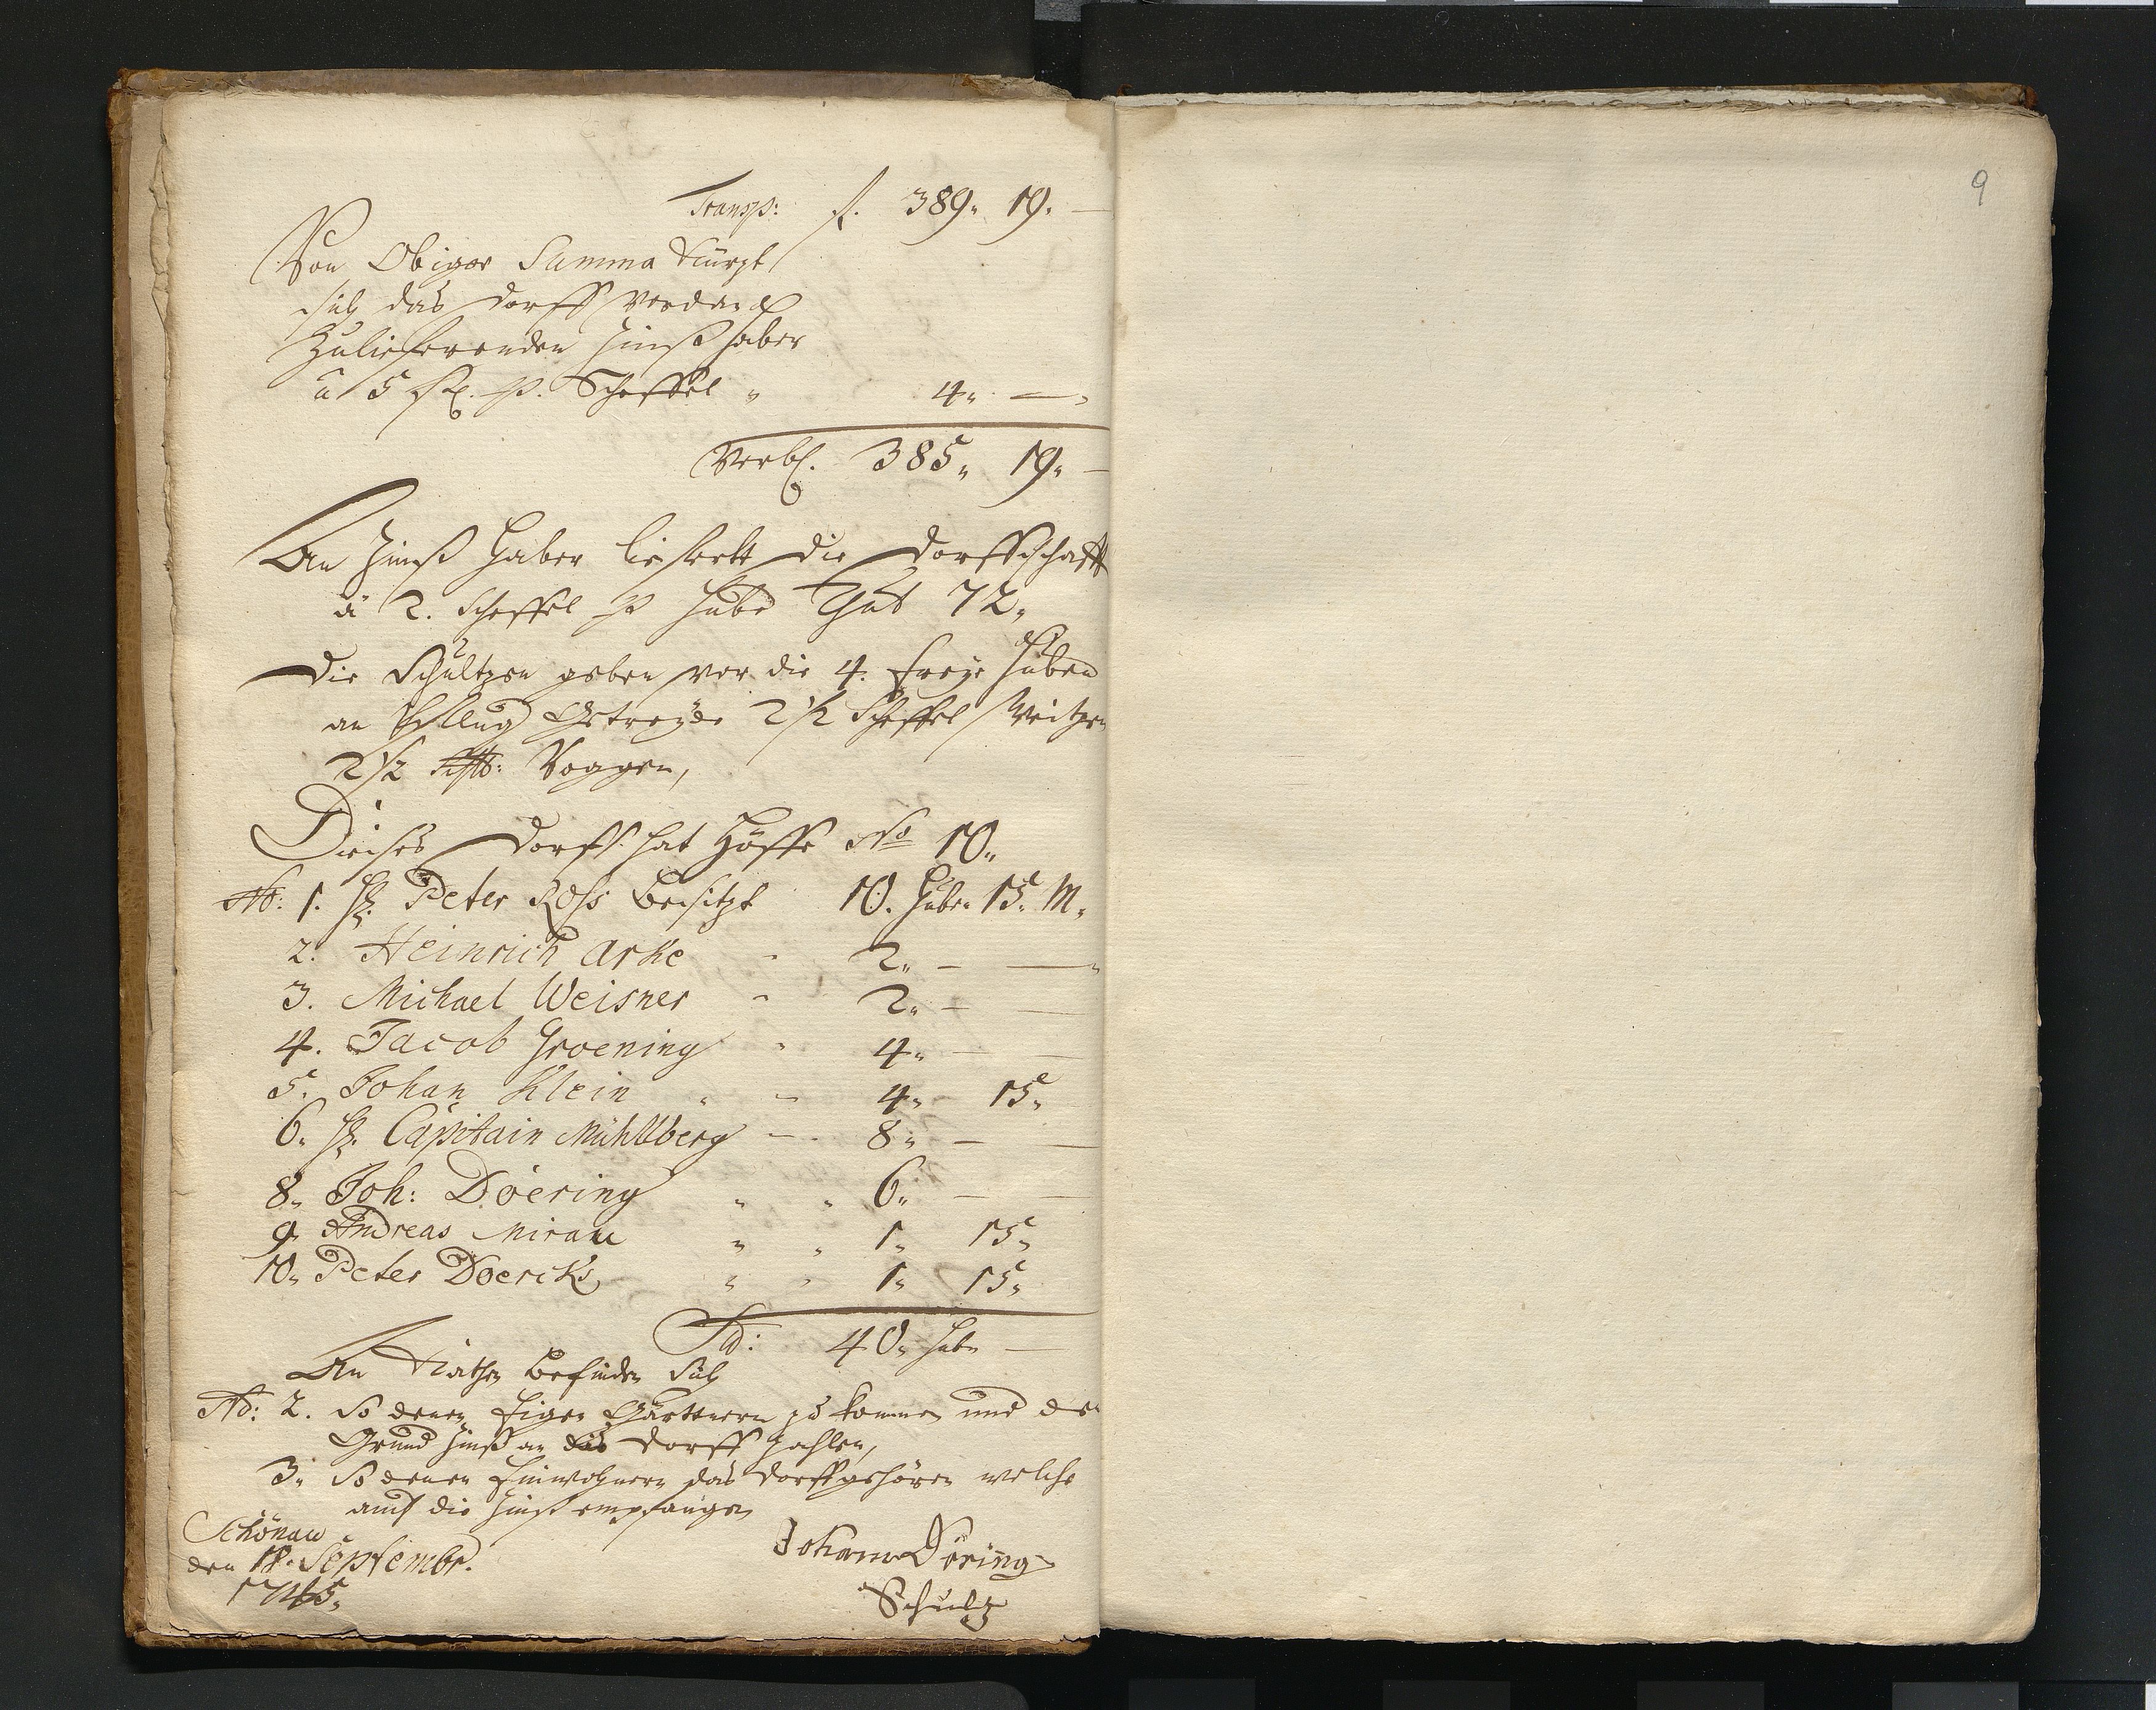 Transp: f. 389„ 19„ —
Von Obiger Summa Kürzt
sich das Dorff vor den
Zulieferenden Zinß haber
à 5 p. Scheffel „ 4„ —„
Verbl. 385„ 19„ —
An Zinß Haber liefertt die Dorffschafft
à 2. Scheffel p Hube Thut 72„
Die Schultzen geben vor die 4. freye Huben
an Pflug Getreyde 2½ Scheffel Weitzen
2½ Roggen,
Dieses Dorff hat Höffe No 10„
No: 1. H. Peter Ross Besitzt 10. Huben 15„ M„
2. Heinrich Arke - 2„ — —„
3. Michael Weisner - 2„ — —
4. Jacob Groening - 4„ — —
5. Johan Klein „ - 4„ 15„
6. H. Capitain Mühlberg - 8„ — —
8„ Joh: Doering „ „ 6„ — —
9„ Andreas Mirau „ „ 1„ 15„
10„ Peter Doercks „ „ 1„ 15„
40„ Hub„ —
An Kathen Befinden Sich
No: 2. So denen Eigen Gärttnern zu kommen und den
Grund Zinß an das Dorff zahlen,
3„ So denen Einwohnern das Dorff gehören welche
auch die Zinß empfangen
Schönau
den 18. Septembr.
1765„
Johann Döring
Schultz
9